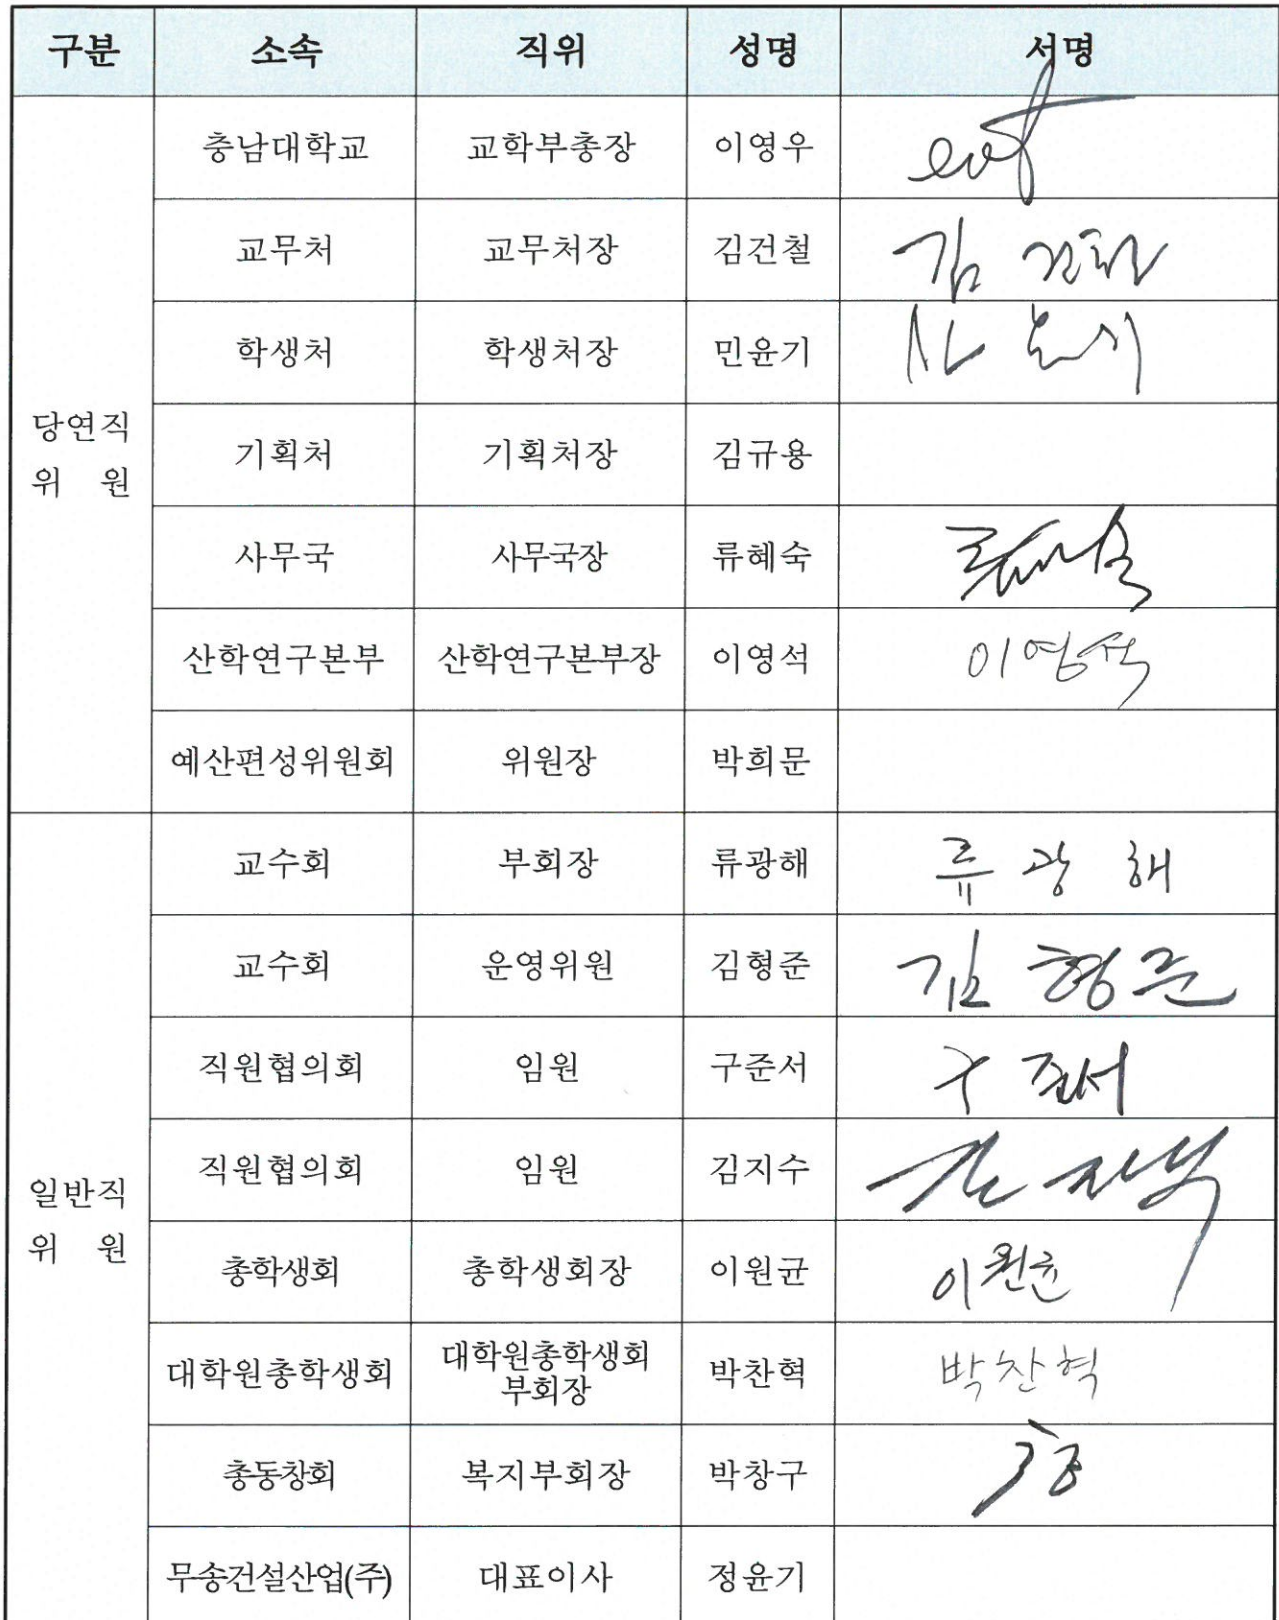 구분 소속 직위 성명 서명
충남대학교 교학부총장 이영우
교무처 교무처장 김건철 김건철
학생처 학생처장 민윤기
당연직
위 원
기획처 기획처장 김규용
사무국 사무국장 류혜숙
산학연구본부 산학연구본부장 이영석 이영석
예산편성위원회 위원장 박희문
교수회 부회장 류광해 류광해
교수회 운영위원 김형준 김형준
직원협의회 임원 구준서 구준서
직원협의회 임원 김지수
일반직
위 원
총학생회 총학생회장 이원균 이원균
대학원총학생회 대학원총학생회
부회장 박찬혁 박찬혁
총동창회 복지부회장 박창구
무송건설산업(주) 대표이사 정윤기